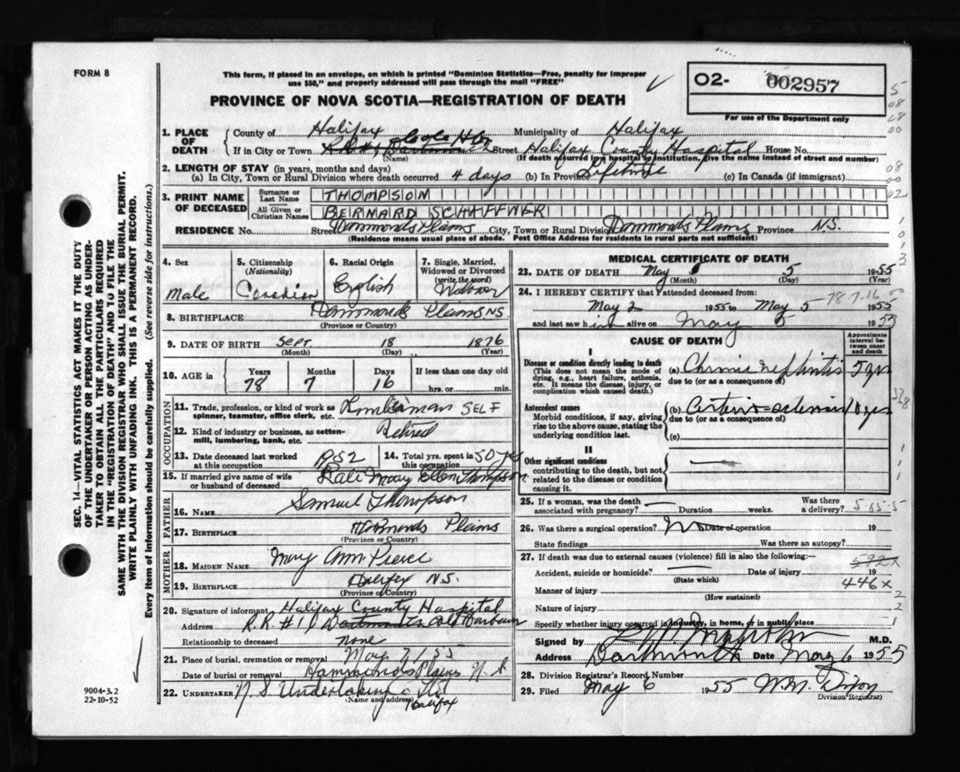 FORM 8
This form, if placed in an envelope, on which is printed "Dominion Statistics—Free, penalty for improper
use $50," and properly addressed will pass through the mail "FREE"
PROVINCE OF NOVA SCOTIA—REGISTRATION OF DEATH
O2- 002957
For use of the Department only
1. PLACE OF DEATH
County of Halifax Municipality of Halifax
If in City or Town R.R.#1 Cole Hbr Street Halifax County Hospital House No.
(Name) (If death occurred in a hospital or institution, give the name instead of street and number)
2. LENGTH OF STAY (in years, months and days)
(a) In City, Town or Rural Division where death occurred 4 days (b) In Province Lifetime (c) In Canada (if immigrant)
3. PRINT NAME OF DECEASED
Surname or Last Name THOMPSON
All Given or Christian Names BERNARD SCHAFFNER
RESIDENCE No. Street Hammonds Plains City, Town or Rural Division Hammonds Plains Province N.S.
(Residence means usual place of abode. Post Office Address for residents in rural parts not sufficient)
4. Sex Male
5. Citizenship (Nationality) Canadian
6. Racial Origin English
7. Single, Married, Widowed or Divorced (write the word) Widower
8. BIRTHPLACE Hammonds Plains NS
(Province or Country)
9. DATE OF BIRTH Sept. 18 1876
(Month) (Day) (Year)
10. AGE in Years Months Days If less than one day
78 7 16 hrs. or min.
OCCUPATION
11. Trade, profession, or kind of work as spinner, teamster, office clerk, etc. Lumberman SELF
12. Kind of industry or business, as cotton-mill, lumbering, bank, etc. Retired
13. Date deceased last worked at this occupation 1952
14. Total yrs. spent in this occupation 50 yrs
15. If married give name of wife or husband of deceased Late Mary Ellen Thompson
FATHER
16. NAME Samuel Thompson
17. BIRTHPLACE Hammonds Plains
(Province or Country)
MOTHER
18. MAIDEN NAME Mary Ann Pierce
19. BIRTHPLACE Halifax N.S.
(Province or Country)
20. Signature of informant Halifax County Hospital
Address R.R.#1 Dartmouth Cole Harbour
Relationship to deceased none
21. Place of burial, cremation or removal May 7/55
Date of burial or removal Hammonds Plains N.S
22. UNDERTAKER N.S. Undertaking Co Ltd
(Name and address) Halifax
MEDICAL CERTIFICATE OF DEATH
23. DATE OF DEATH May 5 1955
(Month) (Day)
24. I HEREBY CERTIFY that I attended deceased from:
78-7-16
May 2 1955 to May 5 1955
and last saw him alive on May 5 1955
CAUSE OF DEATH
Approximate interval between onset and death
I
Disease or condition directly leading to death
(This does not mean the mode of dying, e.g., heart failure, asthenia, etc. It means the disease, injury, or complication which caused death.)
(a) Chronic nephritis
due to (or as a consequence of)
Antecedent causes
Morbid conditions, if any, giving rise to the above cause, stating the underlying condition last.
(b) Arterio-sclerosis
due to (or as a consequence of)
(c)
II
Other significant conditions
contributing to the death, but not related to the disease or condition causing it.
25. If a woman, was the death associated with pregnancy? Duration weeks. Was there a delivery?
26. Was there a surgical operation? No Date of operation 19
State findings Was there an autopsy?
27. If death was due to external causes (violence) fill in also the following:—
592x
Accident, suicide or homicide? Date of injury 19
(State which)
446x
Manner of injury
(How sustained)
Nature of injury
Specify whether injury occurred in industry, in home, or in public place
Signed by M.D.
Address Dartmouth Date May 6 1955
28. Division Registrar's Record Number
29. Filed May 6 1955 W.M. Dixon
Division Registrar
SEC. 14—VITAL STATISTICS ACT MAKES IT THE DUTY
OF THE UNDERTAKER OR PERSON ACTING AS UNDER-
TAKER TO OBTAIN ALL THE PARTICULARS REQUIRED
IN THE "REGISTRATION OF DEATH" AND TO FILE THE
SAME WITH THE DIVISION REGISTRAR WHO SHALL ISSUE THE BURIAL PERMIT.
WRITE PLAINLY WITH UNFADING INK. THIS IS A PERMANENT RECORD.
Every item of information should be carefully supplied. (See reverse side for instructions.)
9004-3.2
22-10-52